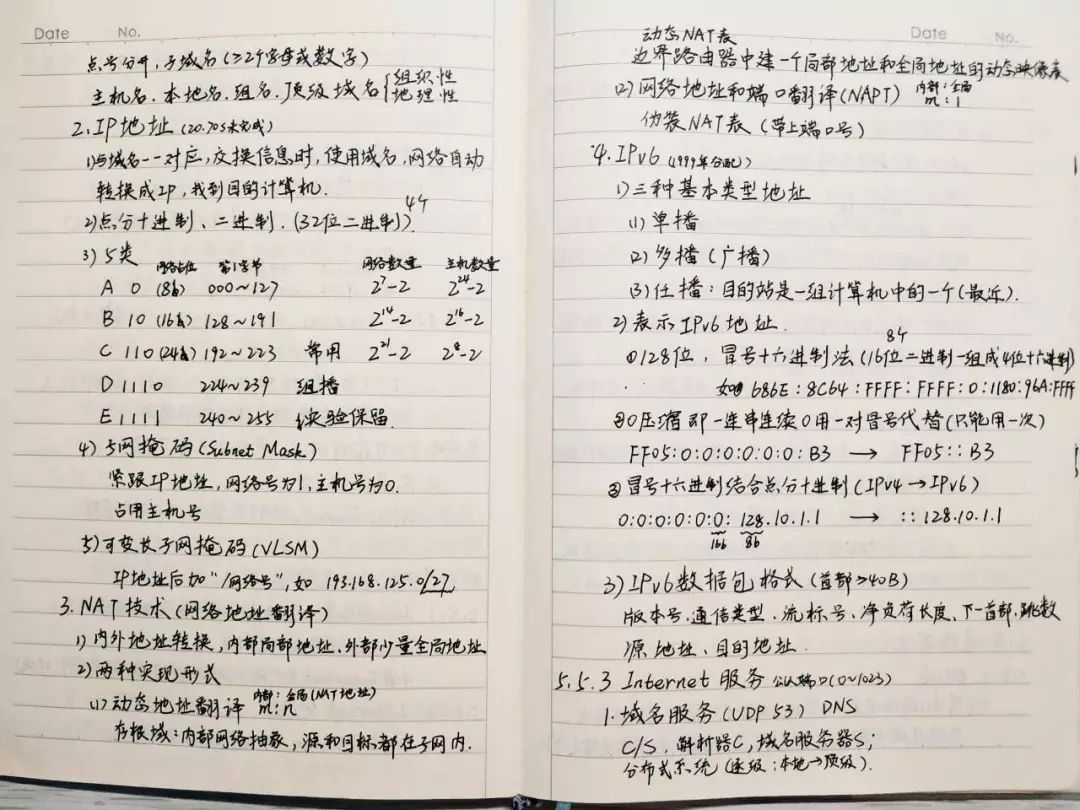 Date No.
点号分开,子域名(≥2个字母或数字)
主机名.本地名.组名.顶级域名{组织性
地理性
2.IP地址(20.705未完成)
1)与域名一一对应,交换信息时,使用域名,网络自动
转换成IP,找到目的计算机.
2)点分十进制、二进制.(32位二进制)4个
3)5类 网络占位 第1字节 网络数量 主机数量
A 0 (8b) 000~127 2⁷-2 2²⁴-2
B 10 (16b) 128~191 2¹⁴-2 2¹⁶-2
C 110 (24b) 192~223 常用 2²¹-2 2⁸-2
D 1110 224~239 组播
E 1111 240~255 实验保留
4)子网掩码(Subnet Mask)
紧跟IP地址,网络号为1,主机号为0.
占用主机号
5)可变长子网掩码(VLSM)
IP地址后加"/网络号",如 193.168.125.0/27
3.NAT技术(网络地址翻译)
1)内外地址转换,内部局部地址、外部少量全局地址
2)两种实现形式
(1)动态地址翻译 内部:全局(NAT地址)
m:n
存根域:内部网络抽象,源和目标都在子网内.
Date No.
动态NAT表
边界路由器中建一个局部地址和全局地址的动态映像表
(2)网络地址和端口翻译(NAPT) 内部:全局
m:1
伪装NAT表(带上端口号)
4.IPv6(1999年分配)
1)三种基本类型地址
(1)单播
(2)多播(广播)
(3)任播:目的站是一组计算机中的一个(最近).
2)表示IPv6地址.
①128位,冒号十六进制法(16位二进制一组成4位十六进制)8个
如 686E:8C64:FFFF:FFFF:0:1180:96A:FFFF
②0压缩即一连串连续0用一对冒号代替(只能用一次)
FF05:0:0:0:0:0:0:B3 → FF05::B3
③冒号十六进制结合点分十进制(IPv4→IPv6)
0:0:0:0:0:0:128.10.1.1 → ::128.10.1.1
16b 8b
3)IPv6数据包格式(首部≥40B)
版本号、通信类型、流标号、净负荷长度、下一首部、跳数
源地址、目的地址
5.5.3 Internet服务 公认端口(0~1023)
1.域名服务(UDP 53) DNS
C/S,解析器C,域名服务器S;
分布式系统(逐级:本地→顶级).